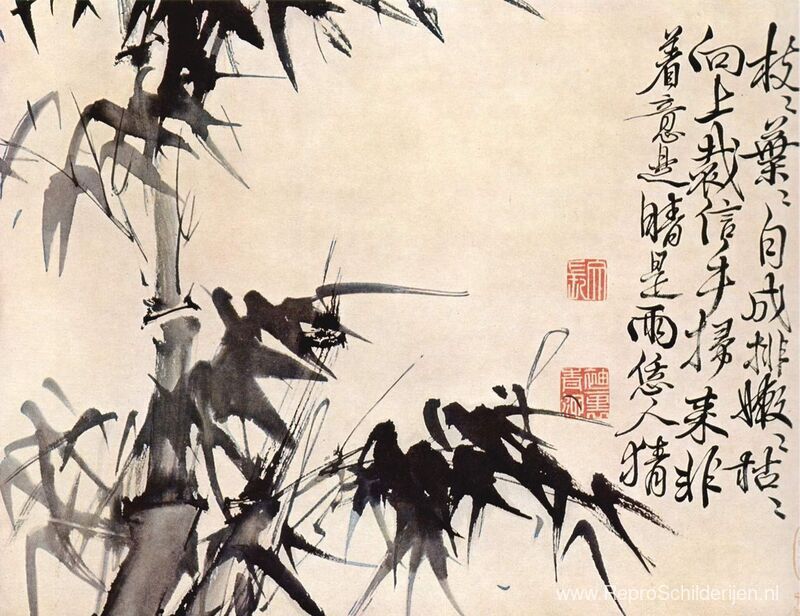 枝〻葉〻自成排嫩〻枯〻
向上裁信手掃来非
着意是晴是雨恁人猜
www.ReproSchilderijen.nl